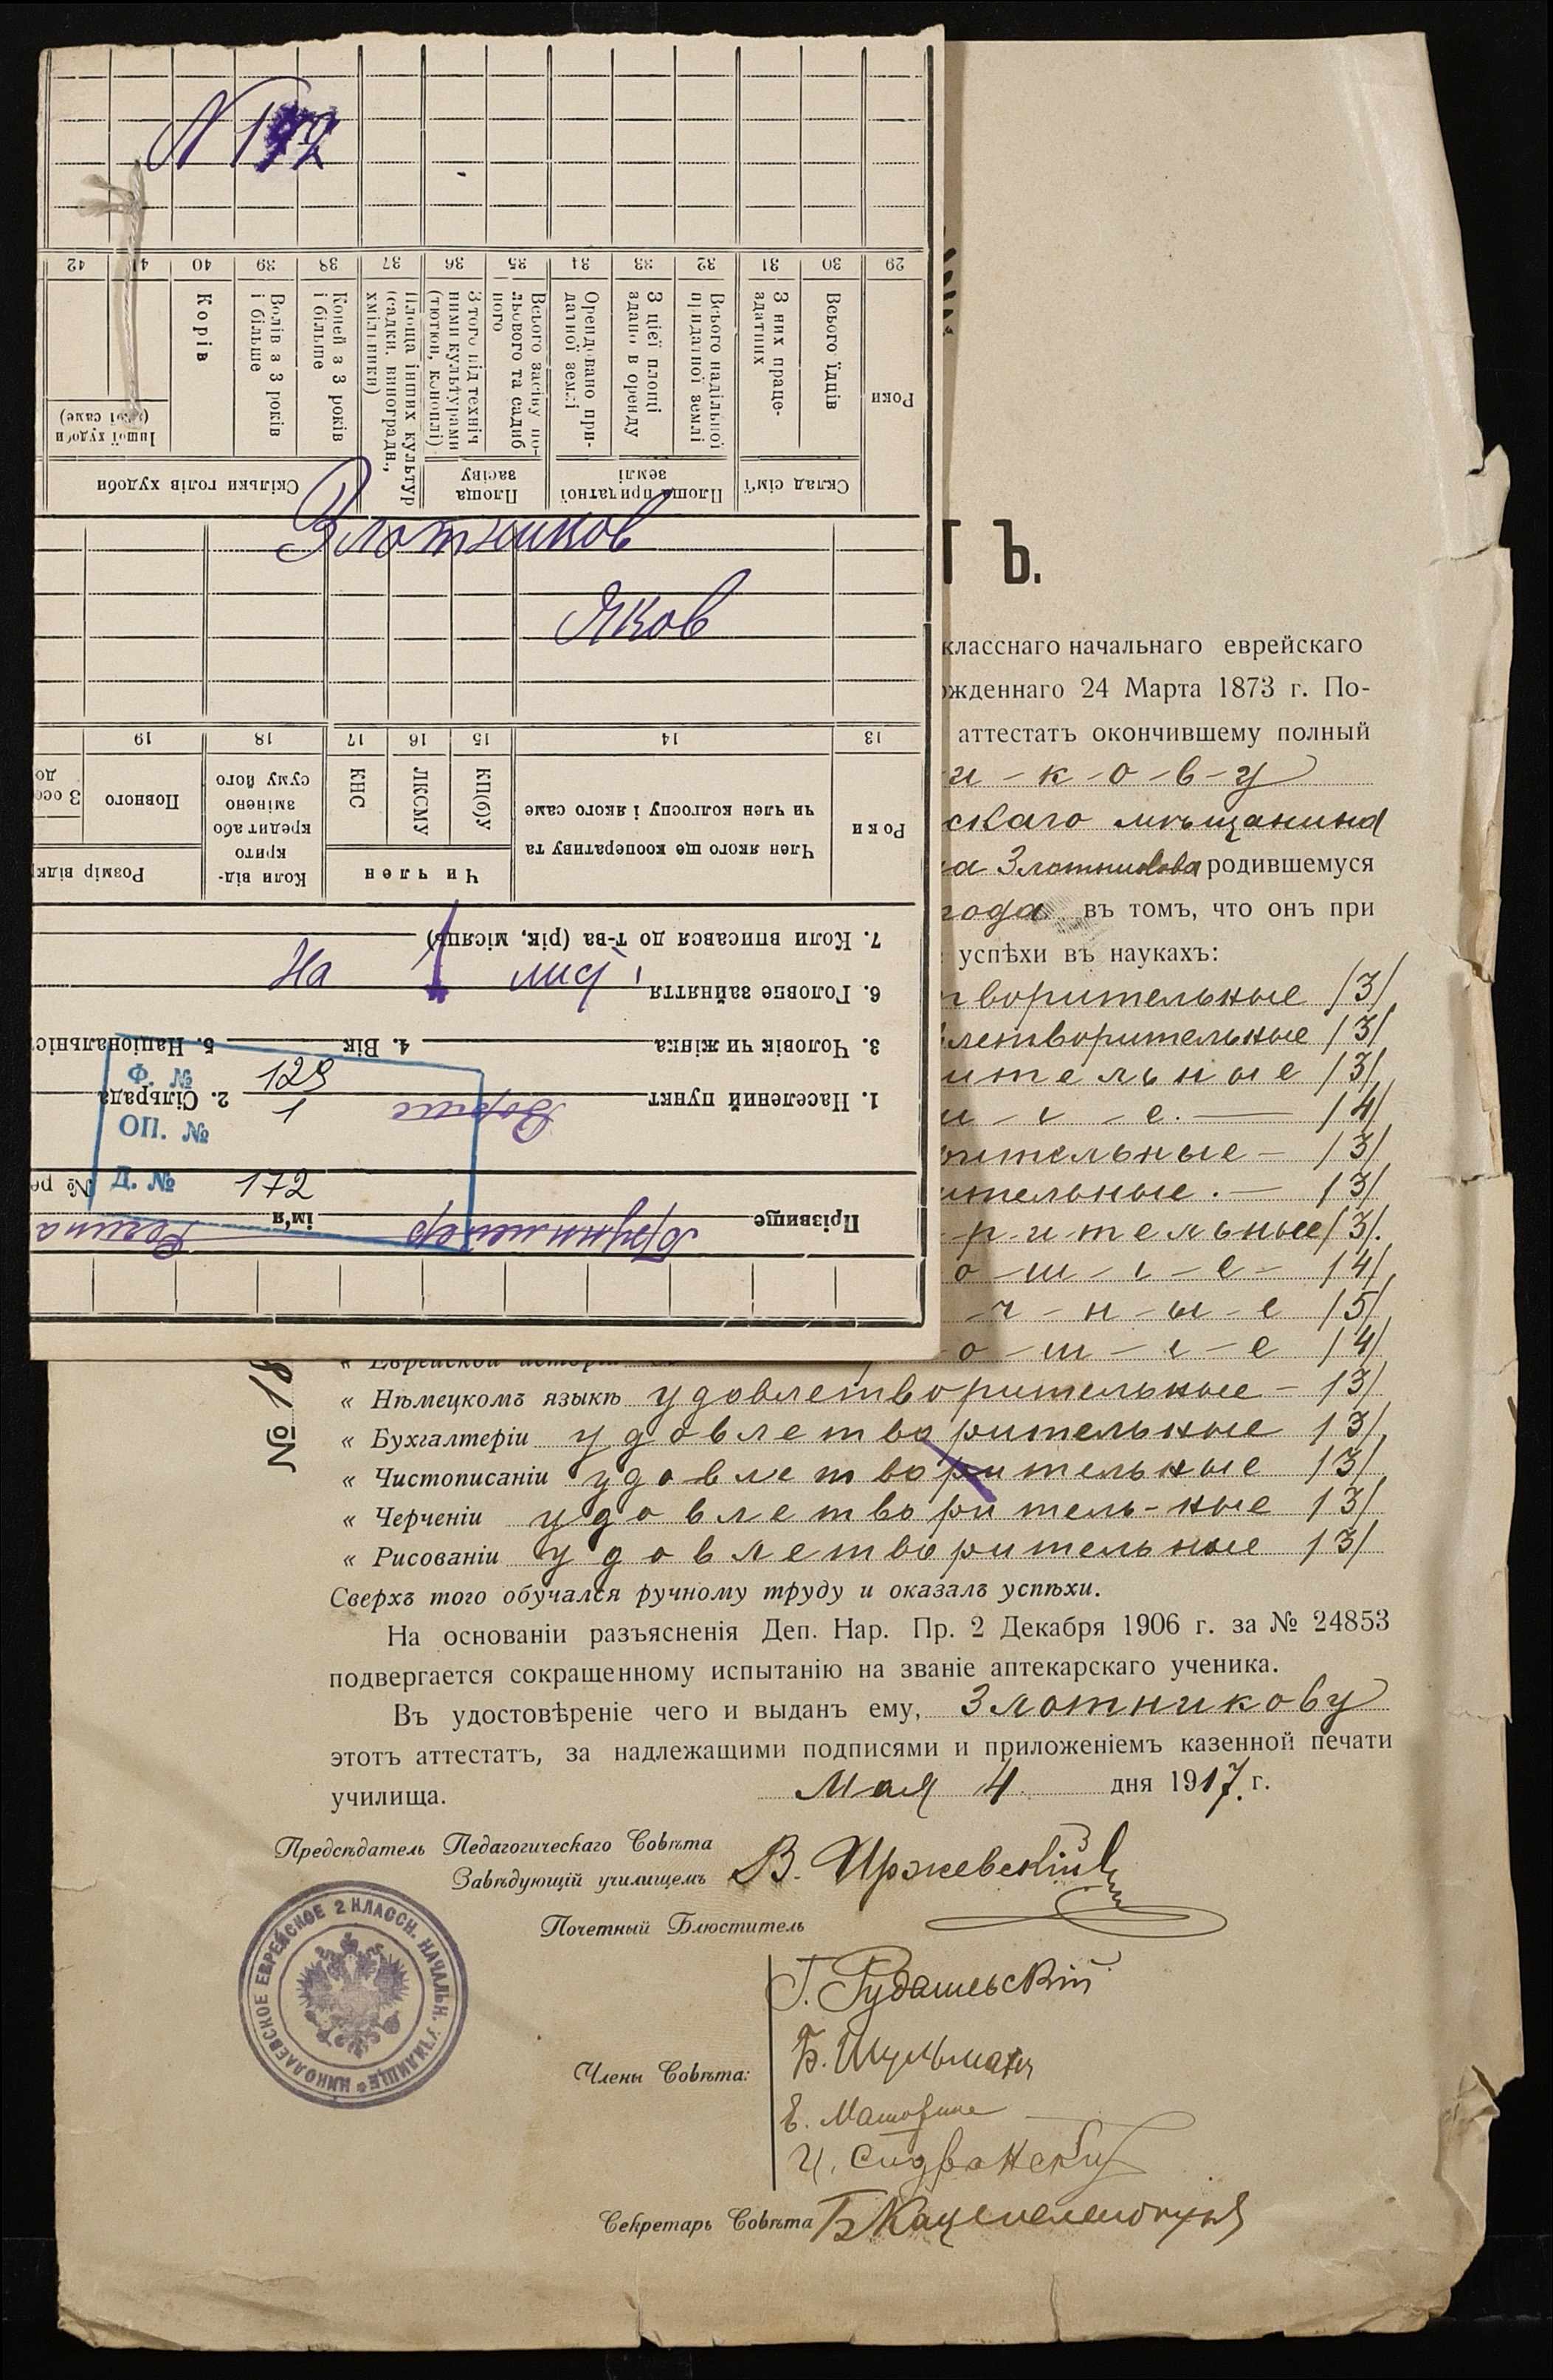 N 172
42 41 40 39 38 37 36 35 34 33 32 31 30 29
Роки
Всього їдців
З них праце-
здатних
Всього надільної
придатної землі
З цієї площі
здано в оренду
Орендовано при-
датної землі
Всього засіву по-
льового та садиб
ного
З того під техніч
ними культурами
(тютюн, коноплі)
Площа інших культур
(садки, виноградн.,
хмільники)
Коней з 3 років
і більше
Волів з 3 років
і більше
Корів
Іншої худоби
(якої саме)
Склад сім'ї
Площа придатної
землі
Площа
засіву
Скільки голів худоби
Злотников
Яков
19 18 17 16 15 14 13
Роки
Член якого ще кооперативу та
чи член колгоспу і якого саме
КП(б)У
ЛКСМУ
КНС
Чи член
Коли від-
крито
кредит або
змінено
суму його
Повного
З осо
до
Розмір відкр
7. Коли вписався до т-ва (рік, місяць)
На
6. Головне зайняття
3. Чоловік чи жінка
4. Вік
5. Національніс
№ Ф.
128
1. Населений пункт
1
2. Сільрада
№ ОП.
№ Д.
172
№ ре
Прізвище
ім'я
ТЪ.
класснаго начальнаго еврейскаго
ожденнаго 24 Марта 1873 г. По-
аттестатъ окончившему полный
и-к-о-в-у
скаго мѣщанина
а Злотникова родившемуся
года въ томъ, что онъ при
успѣхи въ наукахъ:
творительные /3/
летворительные /3/
ительные /3/
ш-і-е. /4/
рительные - /3/
ительные. - /3/
р-ительные /3/.
о-ш-і-е- /4/
-ч-н-ы-е /5/
№ 18
« Еврейской исторіи о-ш-і-е /4/
« Нѣмецкомъ языкѣ удовлетворительные - /3/
« Бухгалтеріи удовлетворительные /3/
« Чистописаніи удовлетворительные /3/
« Черченіи удовлетворитель-ные /3/
« Рисованіи удовлетворительные /3/
Сверхъ того обучался ручному труду и оказалъ успѣхи.
На основаніи разъясненія Деп. Нар. Пр. 2 Декабря 1906 г. за № 24853
подвергается сокращенному испытанію на званіе аптекарскаго ученика.
Въ удостовѣреніе чего и выданъ ему, Злотникову
этотъ аттестатъ, за надлежащими подписями и приложеніемъ казенной печати
училища. Мая 4 дня 1917. г.
Предсѣдатель Педагогическаго Совѣта
Завѣдующій училищемъ В. Иржевскій
Почетный Блюститель
Г. Рудашевскій
Члены Совѣта: Б. Шульманъ
Е.
И.
Секретарь Совѣта Б
НИКОЛАЕВСКОЕ ЕВРЕЙСКОЕ 2 КЛАССН. НАЧАЛЬН. УЧИЛИЩЕ